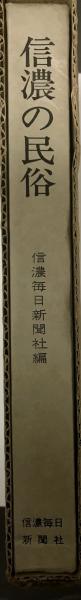 信濃の民俗
信濃毎日新聞社編
信濃毎日
新聞社